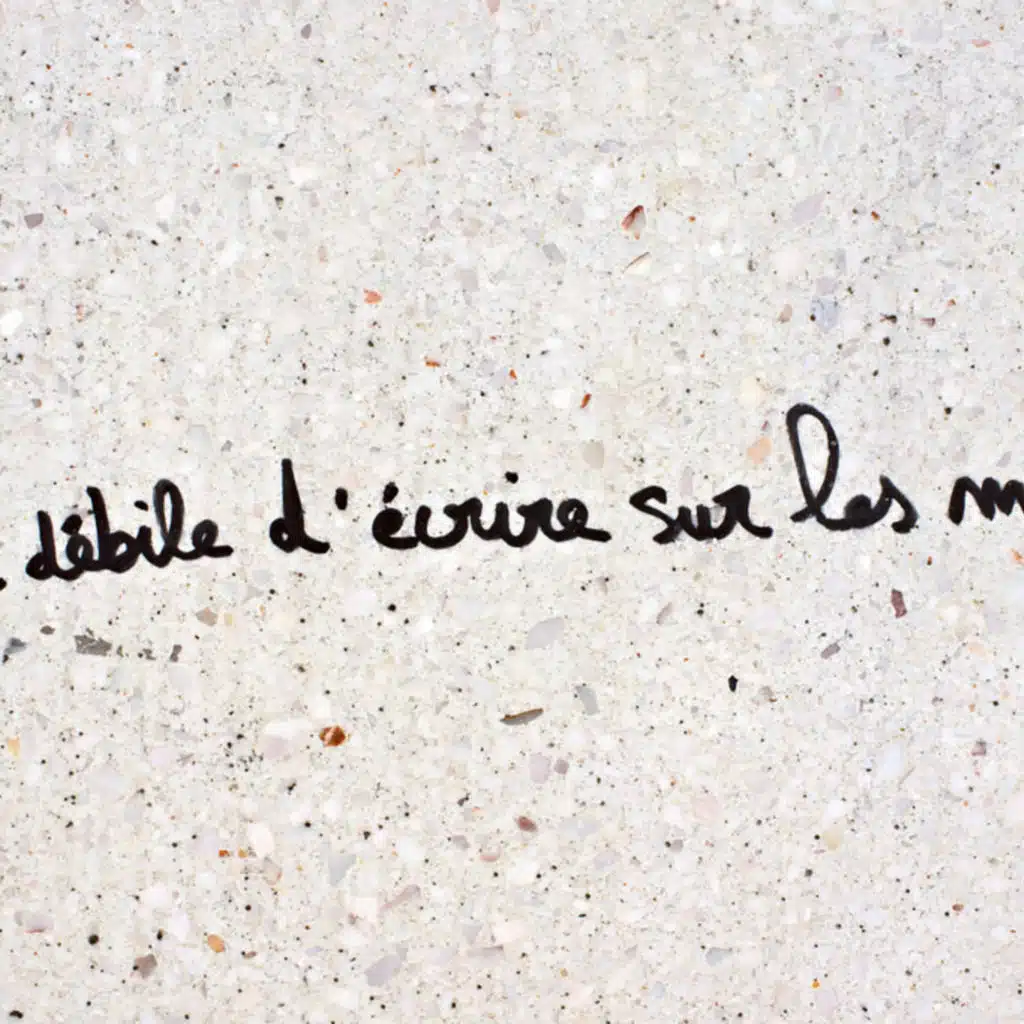 débile d'écrire sur les m